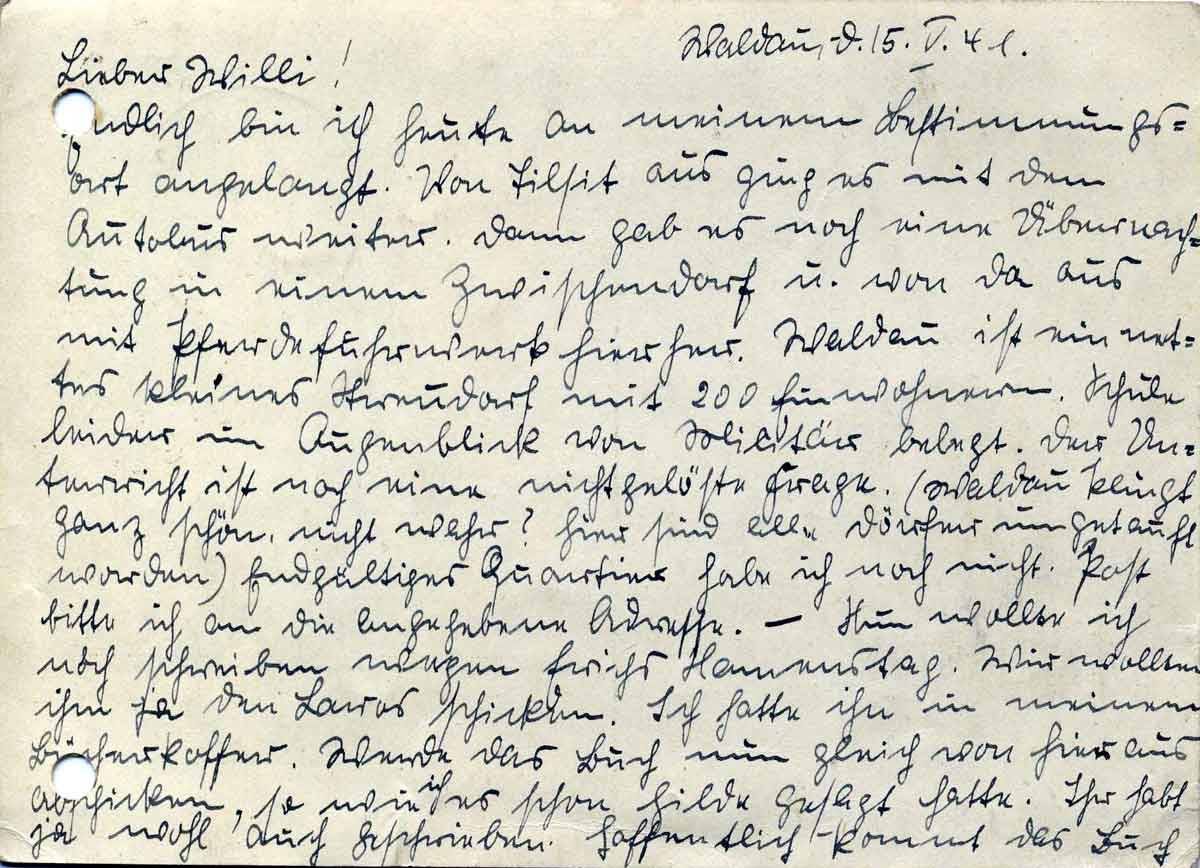 Waldau, d. 15. V. 41.
Lieber Willi!
Endlich bin ich heute an meinem Bestimmungs=
ort angelangt. Von Tilsit aus ging es mit dem
Autobus weiter. Dann gab es noch eine Übernach=
tung in einem Zwischendorf u. von da aus
mit Pferdefuhrwerk hierher. Waldau ist ein net=
tes kleines Streudorf mit 200 Einwohnern. Schule
leider im Augenblick von Militär belegt. Der Un=
terricht ist noch eine nichtgelöste Frage. (Waldau klingt
ganz schön, nicht wahr? Hier sind alle Dörfer umgetauft
worden) Endgültiges Quartier habe ich noch nicht. Post
bitte ich an die angegebene Adresse. — Nun wollte ich
noch schreiben wegen Erichs Namenstag. Wir wollten
ihm ja den Laros schicken. Ich hatte ihn in meinem
Bücherkoffer. Werde das Buch nun gleich von hier aus
abschicken, so wie ich es schon Hilde gesagt hatte. Ihr habt
ja wohl auch geschrieben. Hoffentlich kommt das Buch